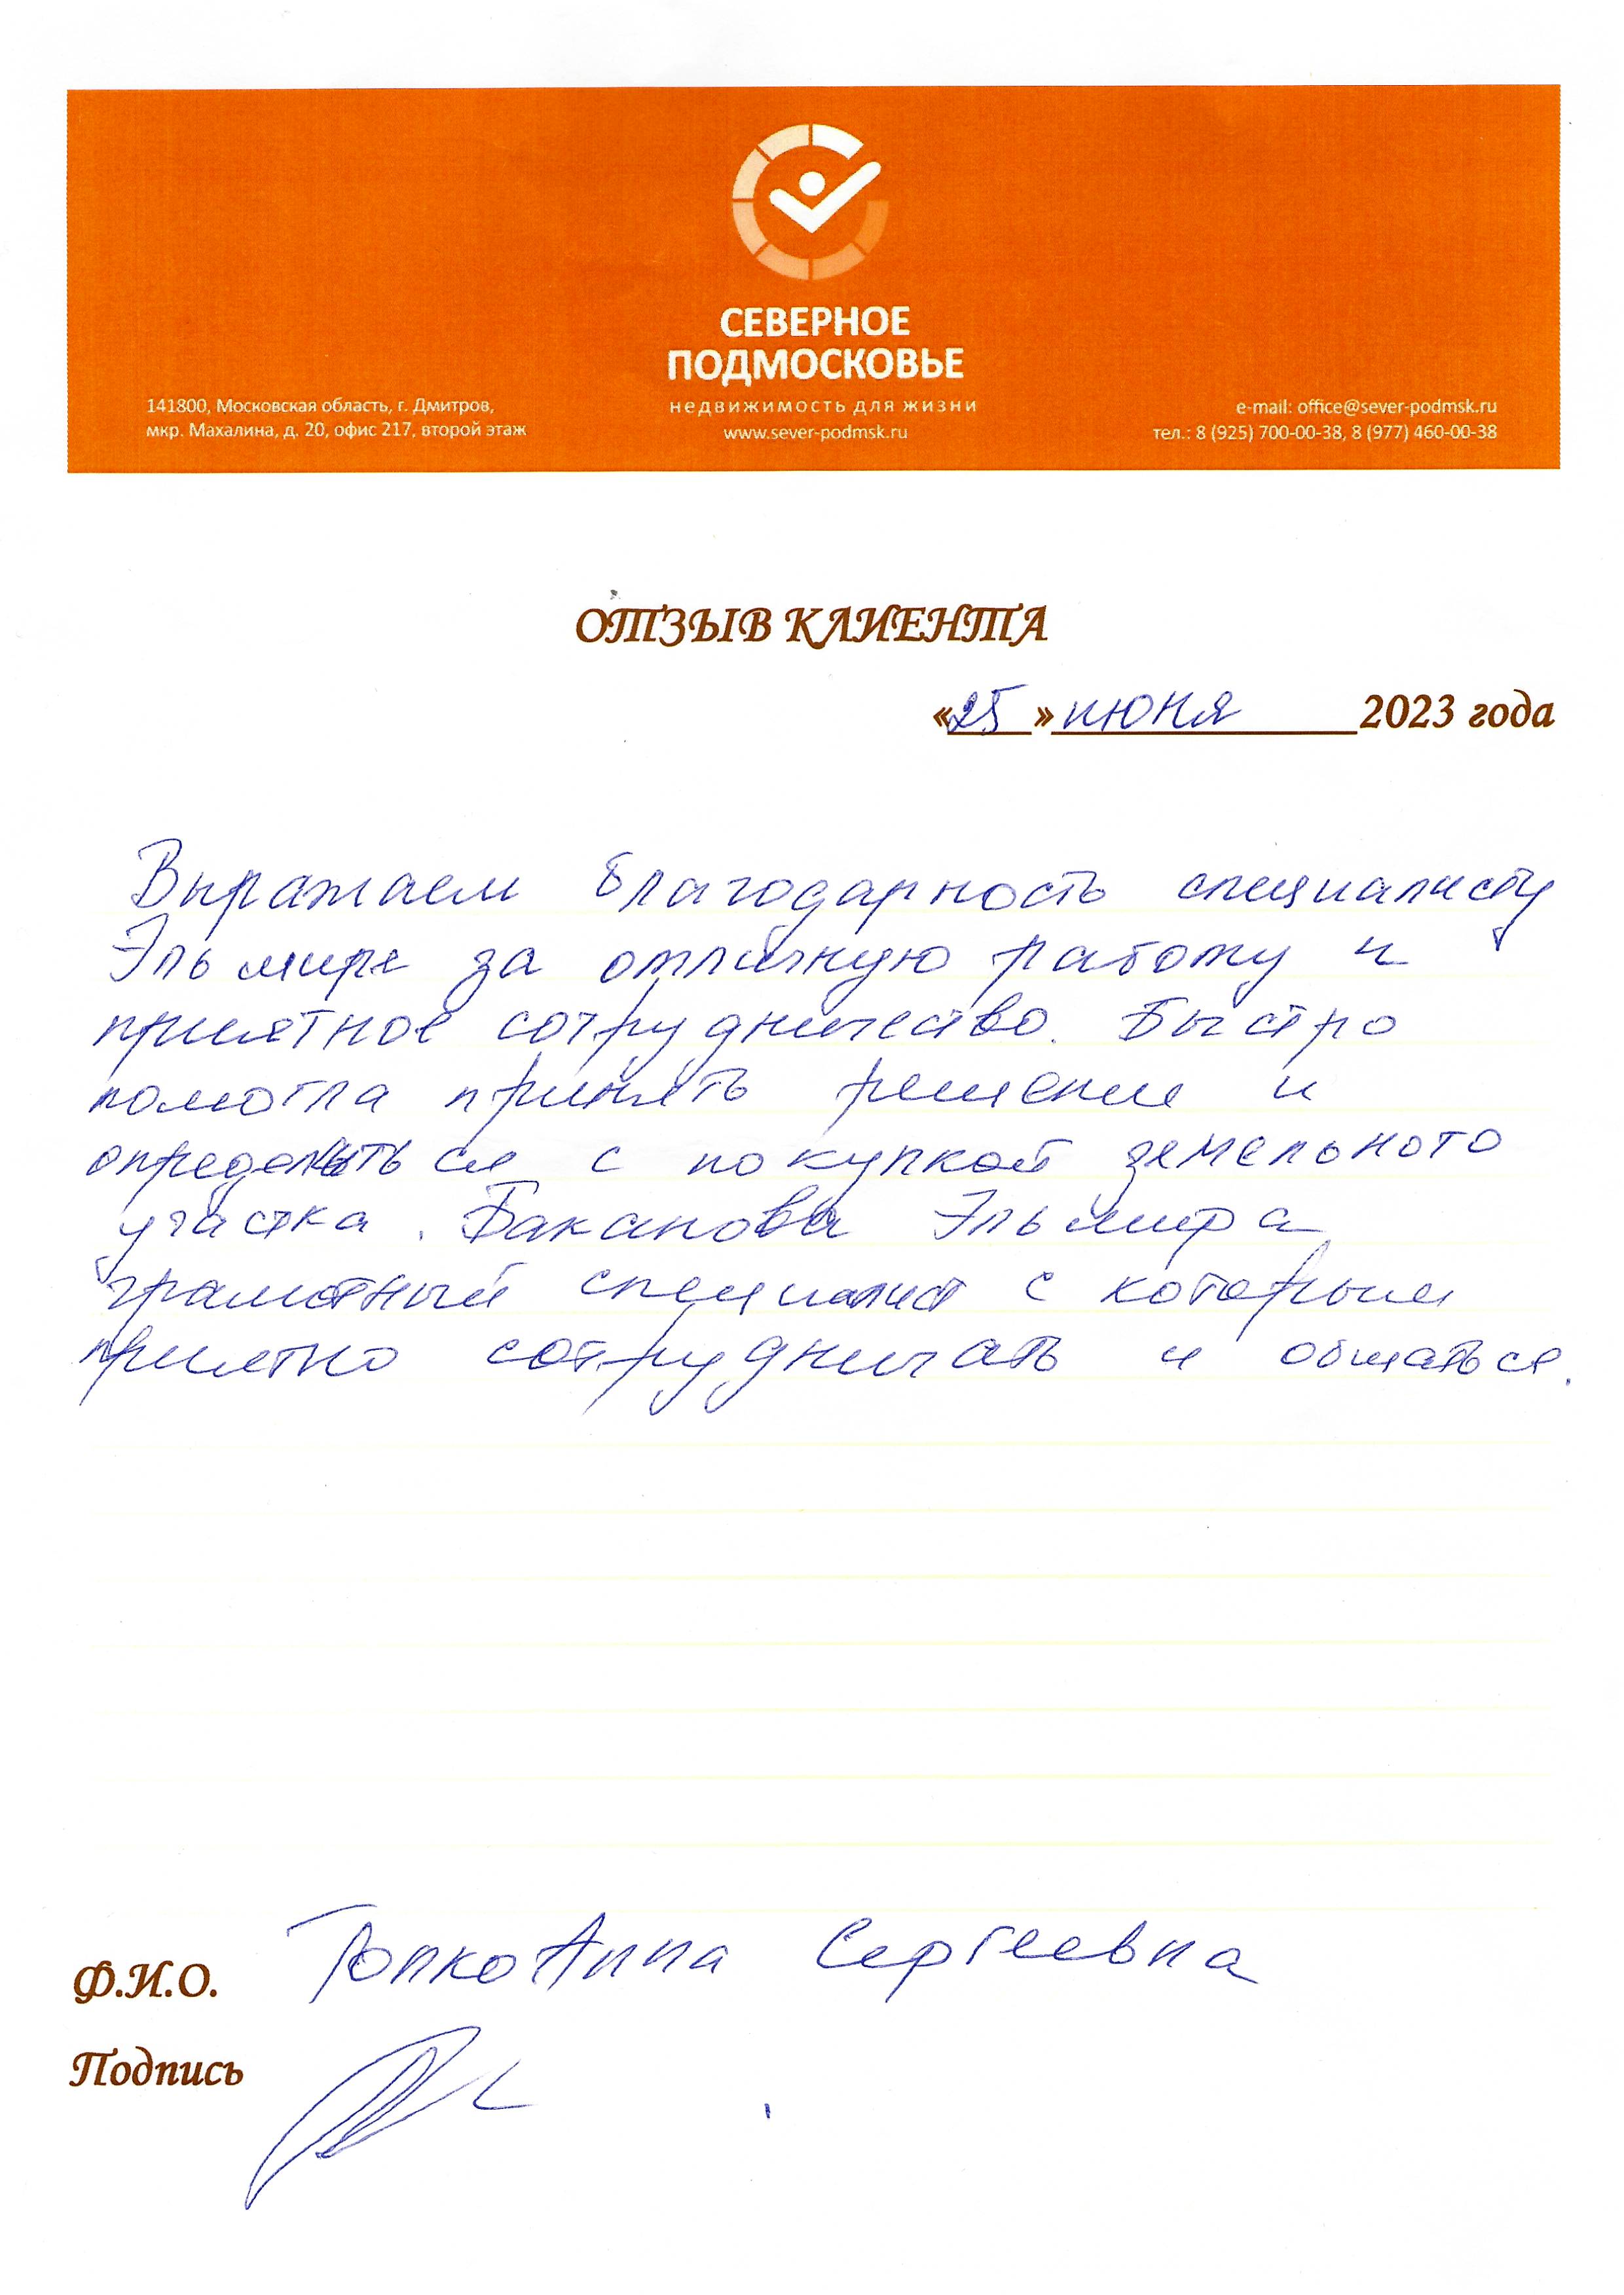 СЕВЕРНОЕ
ПОДМОСКОВЬЕ
недвижимость для жизни
www.sever-podmsk.ru
141800, Московская область, г. Дмитров,
мкр. Махалина, д. 20, офис 217, второй этаж
e-mail: office@sever-podmsk.ru
тел.: 8 (925) 700-00-38, 8 (977) 460-00-38
ОТЗЫВ КЛИЕНТА
«25» июня 2023 года
Выражаем благодарность специалисту
Эльмире за отличную работу и
приятное сотрудничество. Быстро
помогла принять решение и
определиться с покупкой земельного
участка. Баканова Эльмира
грамотный специалист с которым
приятно сотрудничать и общаться.
Ф.И.О. Анна Сергеевна
Подпись